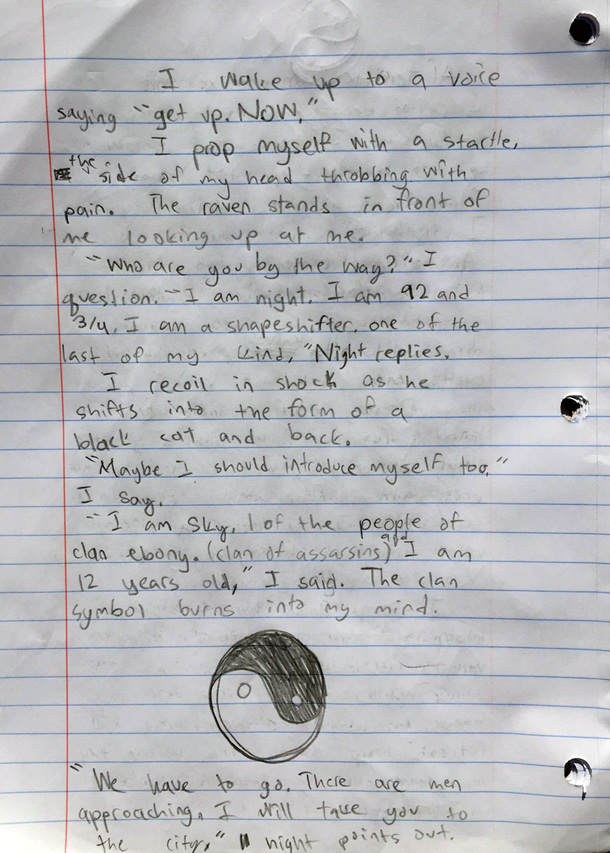 I wake up to a voice
saying "get up. NOW."
I prop myself with a startle,
the side of my head throbbing with
pain. The raven stands in front of
me looking up at me.
"Who are you by the way?" I
question. "I am night. I am 92 and
3/4. I am a shapeshifter, one of the
last of my kind," Night replies.
I recoil in shock as he
shifts into the form of a
black cat and back.
"Maybe I should introduce myself too,"
I say.
"I am Sky, 1 of the people of
clan ebony. (clan of assarsins) and I am
12 years old," I said. The clan
symbol burns into my mind.
"We have to go. There are men
approaching. I will take you to
the city," night points out.